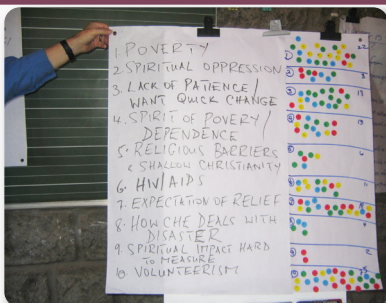 1. POVERTY
2 SPIRITUAL OPPRESSION
3. LACK OF PATIENCE/
WANT QUICK CHANGE
4. SPIRIT OF POVERY/
DEPENDENCE
5. RELIGIOUS BARRIERS
& SHALLOW CHRISTIANITY
6. HIV/AIDS
7. EXPECTATION OF RELIEF
8. HOW CHE DEALS WITH
DISASTER
9. SPIRITUAL IMPACT HARD
TO MEASURE
10. VOLUNTEERISM